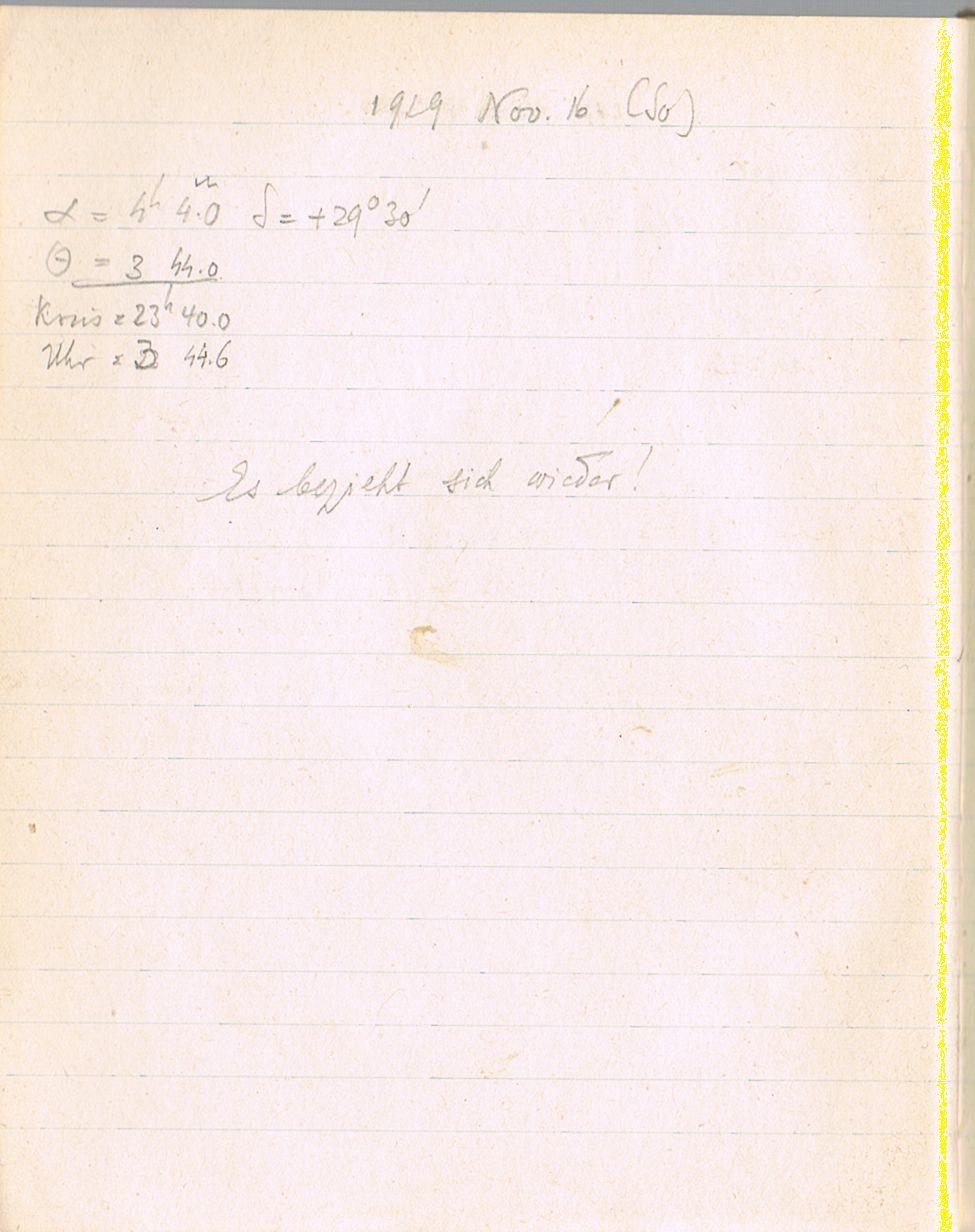 1919 Nov. 16 (So)
α = 4ʰ 4.ᵐ0 δ = +29° 30'
Θ = 3 44.0
Kreis = 23ʰ 40.0
Uhr = 3 44.6
Es bezieht sich wieder!